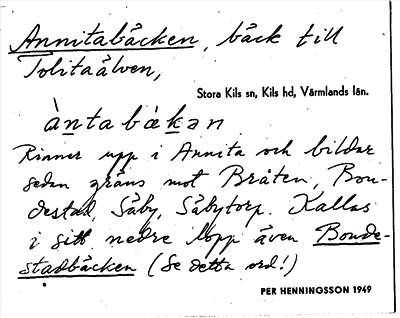 Annitabäcken, bäck till
Tolitaälven,
Stora Kils sn, Kils hd, Värmlands län.
àntabäkən
Rinner upp i Annita och bildar
sedan gräns mot Bråten, Bon-
destad, Säby, Säbytorp. Kallas
i sitt nedre lopp även Bonde-
stadbäcken (Se detta ord!)
PER HENNINGSSON 1949